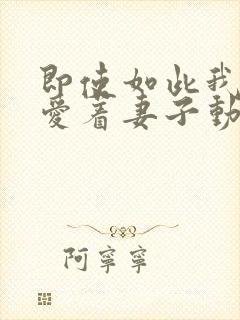 即使如此我
爱着妻子動
阿寧寧